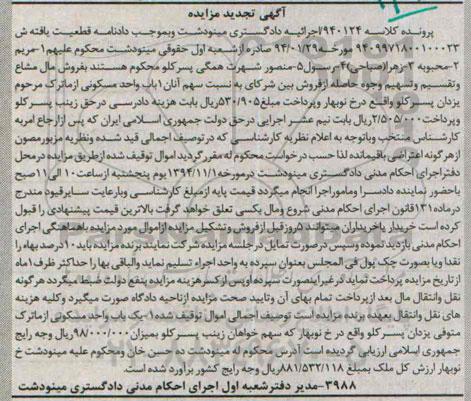 آگهی تجدید مزایده
پرونده کلاسه ۹۴۰۱۲۴/اجرائیه دادگستری مینودشت وبموجب دادنامه قطعیت یافته ش
۹۴۰۹۹۷۱۸۰۰۱۰۰۰۲۳ مورخه ۹۴/۰۱/۲۹ صادره ازشعبه اول حقوقی مینودشت محکوم علیهم ۱-مریم
۲-محبوبه ۳-زهرا(صباحی)۴-رسول۵-منصور شهرت همگی پسرکلو محکوم هستند بفروش مال مشاع
وتقسیم وتسهیم وجوه حاصله ازفروش بین شرکای به نسبت سهم آنان ۱باب واحد مسکونی ازماترک مرحوم
یزدان پسرکلو واقع درخ نوبهار وپرداخت مبلغ۵۳۰/۹۰۵ریال بابت هزینه دادرسی درحق زینب پسرکلو
وپرداخت ۲/۵۰۵/۰۰۰ریال بابت نیم عشر اجرای درحق دولت جمهوری اسلامی ایران که پس ازارجاع امربه
کارشناس منتخب وباتوجه به اعلام نظریه کارشناسی که درتوصیف اجمالی قید شده ونظریه مزبورمصون
ازهرگونه اعتراضی باقیمانده لذا حسب درخواست محکوم له مقررگردید اموال توقیف شده ازطریق مزایده درمحل
دفتراجرای احکام مدنی دادگستری مینودشت درمورخه۱۳۹۴/۱۱/۱یوم پنجشنبه ازساعت۱۰الی ۱۱صبح
باحضور نماینده دادسرا وماموراجرا انجام میگردد قیمت پایه ازمبلغ کارشناسی وبارعایت سایرقیود مندرج
درماده۱۳۱قانون اجرای احکام مدنی شروع ومال بکسی تعلق خواهد گرفت بالاترین قیمت پیشنهادی را قبول
کرده است خریدار یاخریداران میتوانند ۵روزقبل ازفروش وتشکیل مزایده ازاموال مورد مزایده باهماهنگی اجرای
احکام مدنی بازدید نموده وسپس درصورت تمایل درجلسه مزایده شرکت نمایند برنده مزایده باید ۱۰درصد بهاء را
نقدا ویا بصورت چک پول فی المجلس بعنوان سپرده به واحد اجراء تسلیم نماید والباقی بهارا حداکثر ظرف۱ماه
ازتاریخ مزایده پرداخت نماید درغیراینصورت سپرده اوپس ازکسر هزینه مزایده بنفع دولت ضبط میگردد هرگونه
نقل وانتقال مال بعد ازپرداخت تمام بهای آن وتایید صحت مزایده ازناحیه دادگاه صورت میگیرد وکلیه هزینه
های نقل وانتقال بعهده برنده مزایده است توصیف اجمالی اموال توقیف شده ۱-یک باب واحد مسکونی ازماترک
متوفی یزدان پسرکلو واقع در خ نوبهار که سهم خواهان زینب پسرکلو بمیزان ۹۸/۰۰۰/۰۰۰ریال وجه رایج
جمهوری اسلامی ارزیابی گردیده است آدرس محکوم له مینودشت ده حسن خان ومحکوم علیه مینودشت خ
نوبهار ارزش کل ملک بمبلغ ۸۸۱/۵۳۲/۱۱۸ریال وجه رایج کشور برآورده شده است.
۳۹۸۸-مدیر دفترشعبه اول اجرای احکام مدنی دادگستری مینودشت